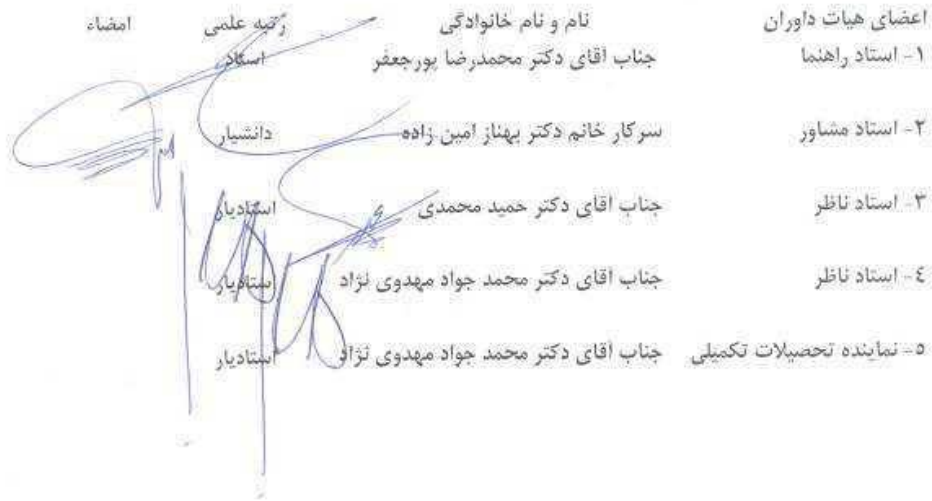 اعضای هیات داوران نام و نام خانوادگی رتبه علمی امضاء
۱- استاد راهنما جناب آقای دکتر محمدرضا پورجعفر استاد
۲- استاد مشاور سرکار خانم دکتر بهناز امین زاده دانشیار
۳- استاد ناظر جناب آقای دکتر حمید محمدی استادیار
٤- استاد ناظر جناب آقای دکتر محمد جواد مهدوی نژاد استادیار
٥- نماینده تحصیلات تکمیلی جناب آقای دکتر محمد جواد مهدوی نژاد استادیار